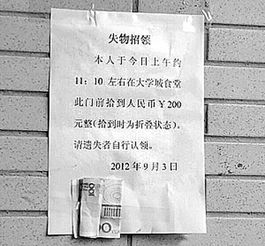 失物招领
本人于今日上午约
11：10.左右在大学城食堂
此门前拾到人民币￥200
元整(拾到时为折叠状态)。
请遗失者自行认领。
2012年9月3日
100